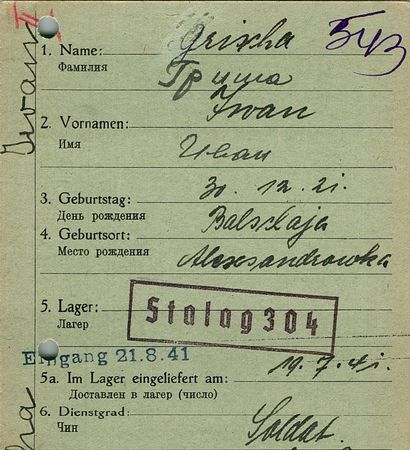 543
Iwan
1. Name: Grischa
Фамилия
Гриша
Iwan
2. Vornamen:
Имя
Иван
30. 12. 21.
3. Geburtstag:
День рождения
Balschaja
4. Geburtsort:
Место рождения
Alexsandrowka
5. Lager: Stalag 304
Лагер
Eingang 21.8.41
19. 7. 41.
5a. Im Lager eingeliefert am:
Доставлен в лагер (число)
6. Dienstgrad: Soldat.
Чин